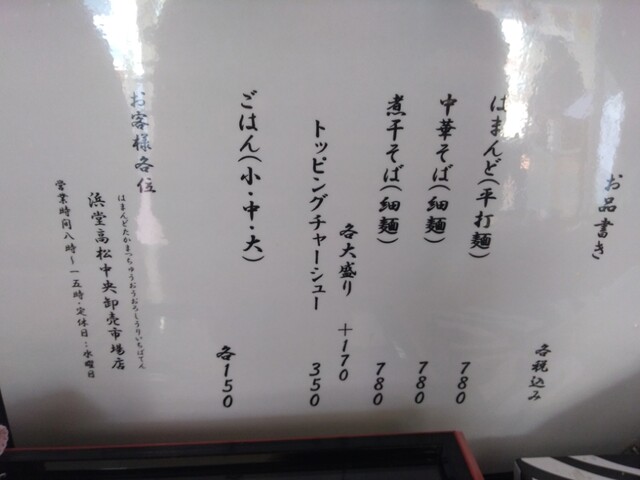 お品書き
各税込み
はまんど(平打麺) 780
中華そば(細麺) 780
煮干そば(細麺) 780
各大盛り +170
トッピングチャーシュー 350
ごはん(小・中・大) 各150
お客様各位
はまんどたかまつちゅうおうおろしうりいちばてん
浜堂高松中央卸売市場店
営業時間八時〜一五時・定休日：水曜日